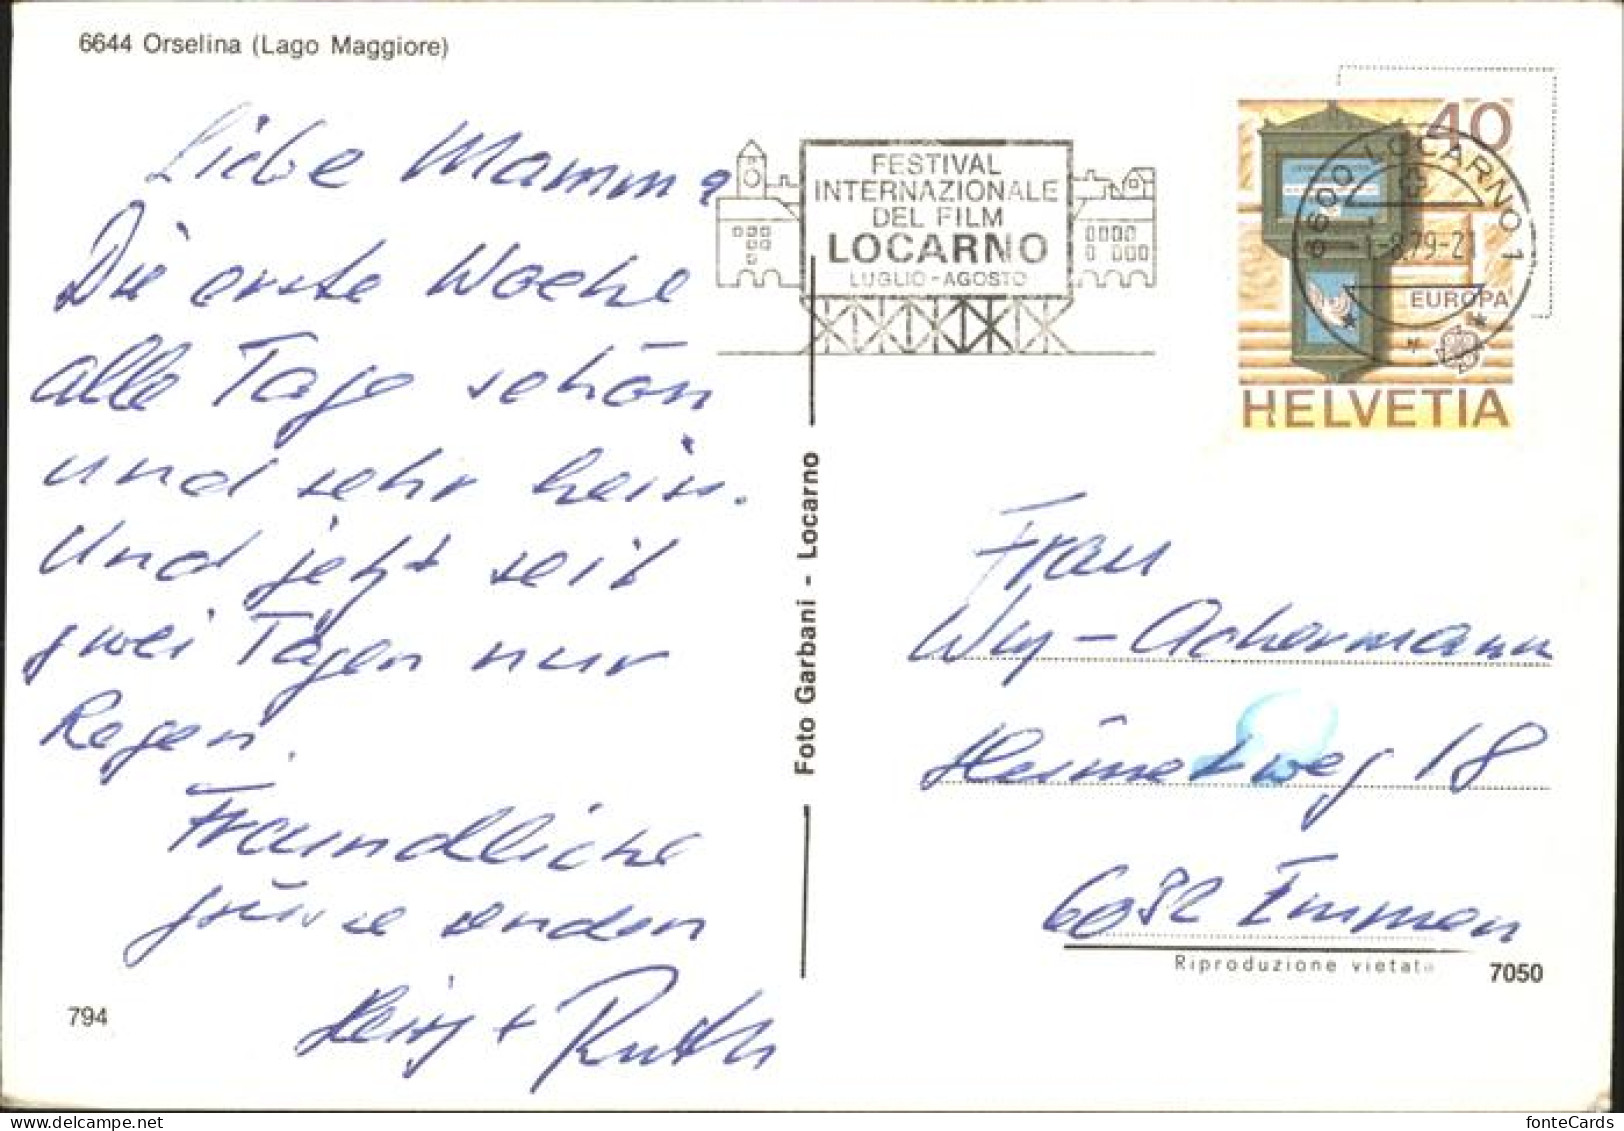 6644 Orselina (Lago Maggiore)
Liebe Mamma
Die erste Woche
alle Tage schön
und sehr heiss.
Und jetzt seit
zwei Tagen nur
Regen.
Freundliche
Grüsse senden
Heinz + Ruth
794
Foto Garbani - Locarno
FESTIVAL
INTERNAZIONALE
DEL FILM
LOCARNO
LUGLIO-AGOSTO
40
6600 LOCARNO 1
-8.79-21
EUROPA
HELVETIA
Frau
Achermann
18
Emmen
Riproduzione vietata
7050
fonteCards